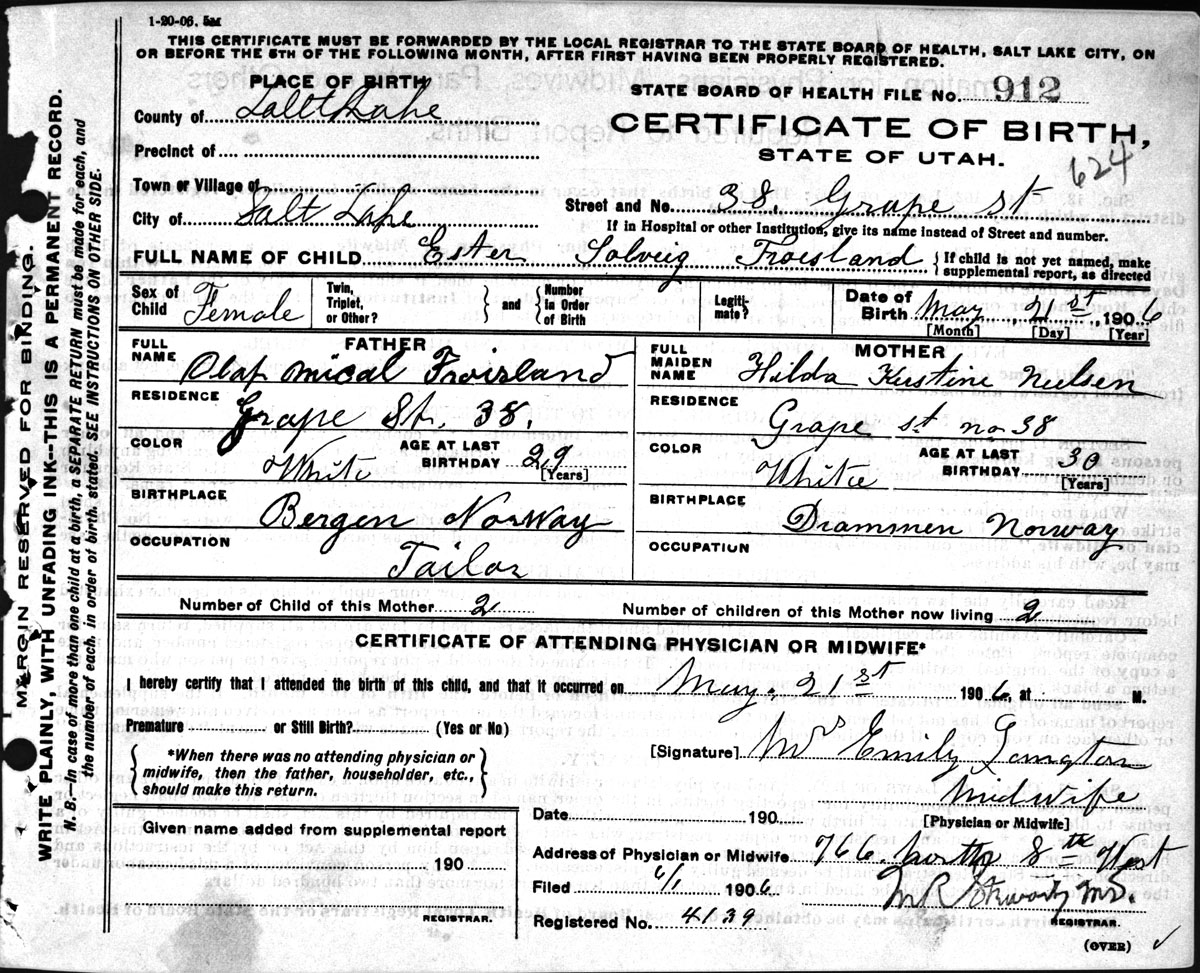 1-20-06, 5M
THIS CERTIFICATE MUST BE FORWARDED BY THE LOCAL REGISTRAR TO THE STATE BOARD OF HEALTH, SALT LAKE CITY, ON
OR BEFORE THE 5TH OF THE FOLLOWING MONTH, AFTER FIRST HAVING BEEN PROPERLY REGISTERED.
PLACE OF BIRTH
STATE BOARD OF HEALTH FILE No. 912
County of Salt Lake
CERTIFICATE OF BIRTH,
Precinct of
STATE OF UTAH.
624
Town or Village of
Street and No. 38, Grape st
City of Salt Lake
If in Hospital or other Institution, give its name instead of Street and number.
FULL NAME OF CHILD Ester Solveig Froisland { If child is not yet named, make supplemental report, as directed
Sex of Child Female
Twin, Triplet, or Other? } and { Number in Order of Birth
Legitimate?
Date of Birth May 21st, 1906
[Month] [Day] [Year]
FATHER
FULL NAME Olaf Mical Froisland
RESIDENCE Grape St. 38.
COLOR White
AGE AT LAST BIRTHDAY 29 [Years]
BIRTHPLACE Bergen Norway
OCCUPATION Tailor
MOTHER
FULL MAIDEN NAME Hilda Kustine Nielsen
RESIDENCE Grape st no 38
COLOR White
AGE AT LAST BIRTHDAY 30 [Years]
BIRTHPLACE Drammen Norway
OCCUPATION
Number of Child of this Mother 2 Number of children of this Mother now living 2
CERTIFICATE OF ATTENDING PHYSICIAN OR MIDWIFE*
I hereby certify that I attended the birth of this child, and that it occurred on May. 21st 1906, at M.
Premature or Still Birth? (Yes or No)
{ *When there was no attending physician or midwife, then the father, householder, etc., should make this return. }
[Signature] Mrs Emily Langton
Midwife
[Physician or Midwife]
Date 190
Given name added from supplemental report
190
REGISTRAR.
Address of Physician or Midwife 766 North 8th West
Filed 6/1 1906
REGISTRAR.
Registered No. 4139
(OVER)
MARGIN RESERVED FOR BINDING.
WRITE PLAINLY, WITH UNFADING INK--THIS IS A PERMANENT RECORD.
N. B.—In case of more than one child at a birth, a SEPARATE RETURN must be made for each, and
the number of each, in order of birth, stated. SEE INSTRUCTIONS ON OTHER SIDE.